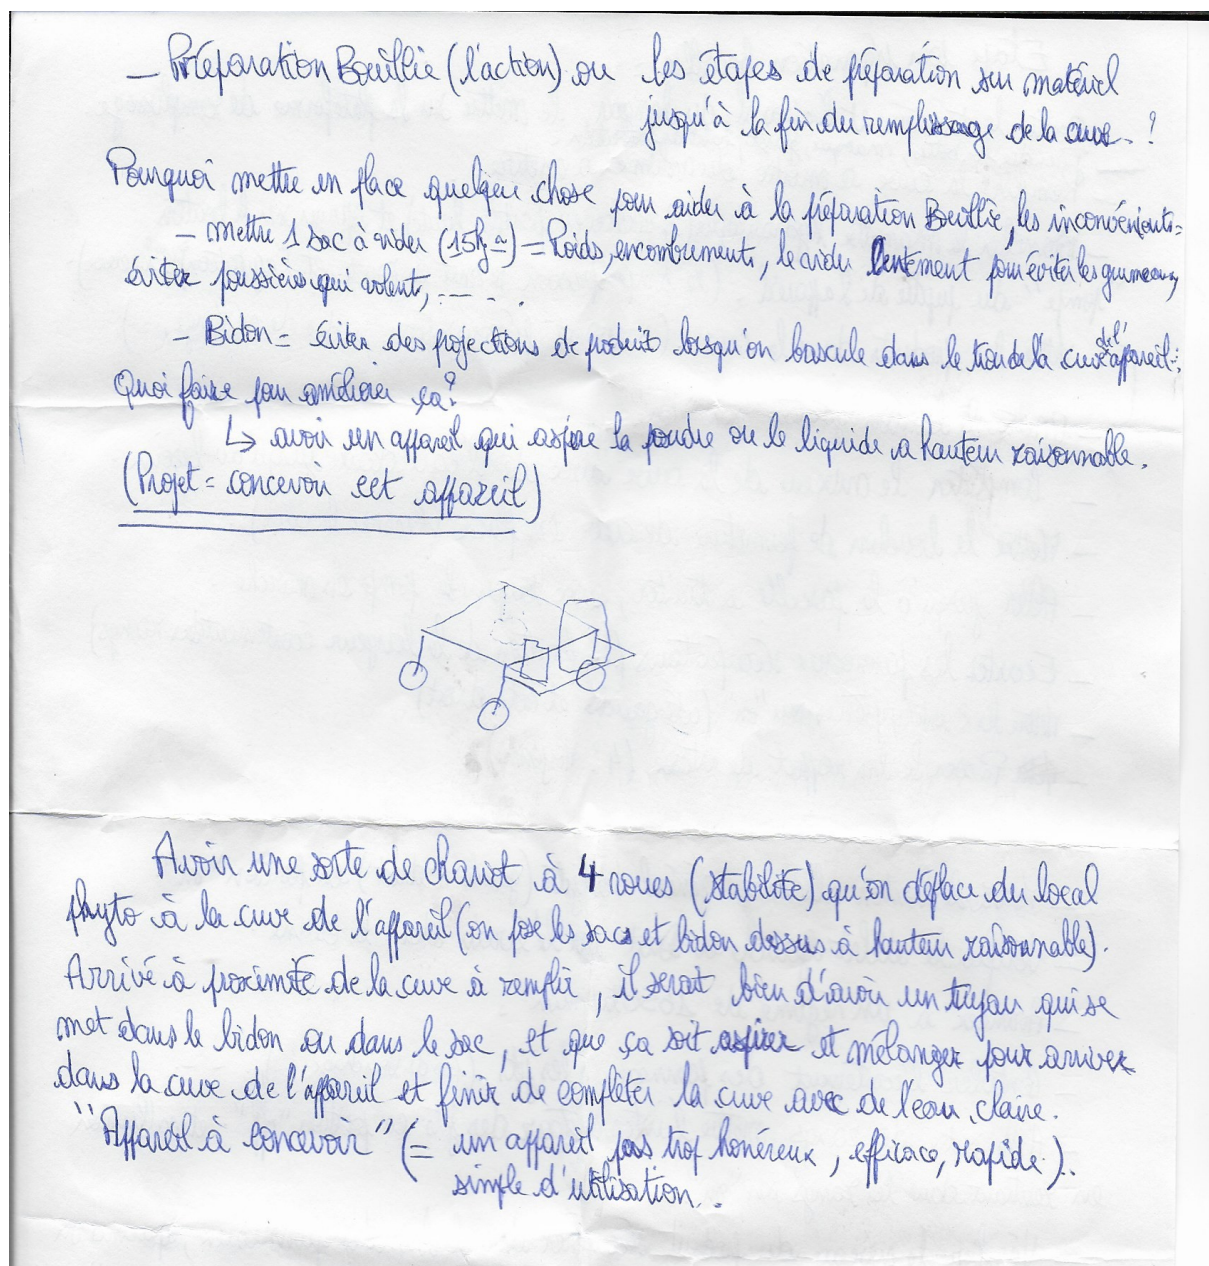 - Préparation Bouillie (l'action) ou les étapes de préparation sur matériel
jusqu'à la fin du remplissage de la cuve. !
Pourquoi mettre en place quelque chose pour aider à la préparation Bouillie, les inconvénients =
- mettre 1 sac à vider (15kg ≃) = Poids, encombrements, le vider lentement pour éviter les grumeaux,
éviter poussières qui volent, .....
- Bidon = éviter des projections de produits lorsqu'on bascule dans le trou de la cuve de l'appareil.
Quoi faire pour améliorer ça?
↳ avoir un appareil qui aspire la poudre ou le liquide a hauteur raisonnable.
(Projet = concevoir cet appareil)
Avoir une sorte de chariot à 4 roues (stabilité) qu'on déplace du local
phyto à la cuve de l'appareil (on pose les sacs et bidon dessus à hauteur raisonnable).
Arrivé à proximité de la cuve à remplir, il serait bien d'avoir un tuyau qui se
met dans le bidon ou dans le sac, et que ça soit aspirer et mélanger pour arriver
dans la cuve de l'appareil et finir de compléter la cuve avec de l'eau claire.
"Appareil à concevoir" (= un appareil pas trop honéreux, efficace, rapide.).
simple d'utilisation..